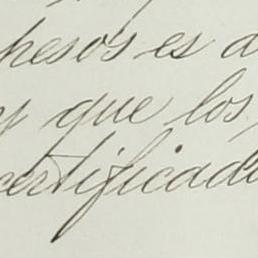 pesos es d
y que los
certificado